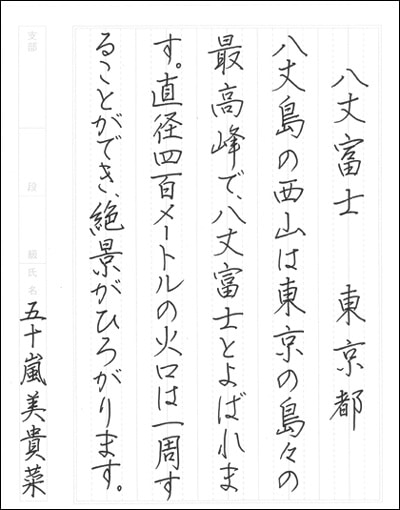 八丈富士　東京都
八丈島の西山は東京の島々の
最高峰で、八丈富士とよばれま
す。直径四百メートルの火口は一周す
ることができ、絶景がひろがります。
支部
段
級
氏名
五十嵐美貴菜